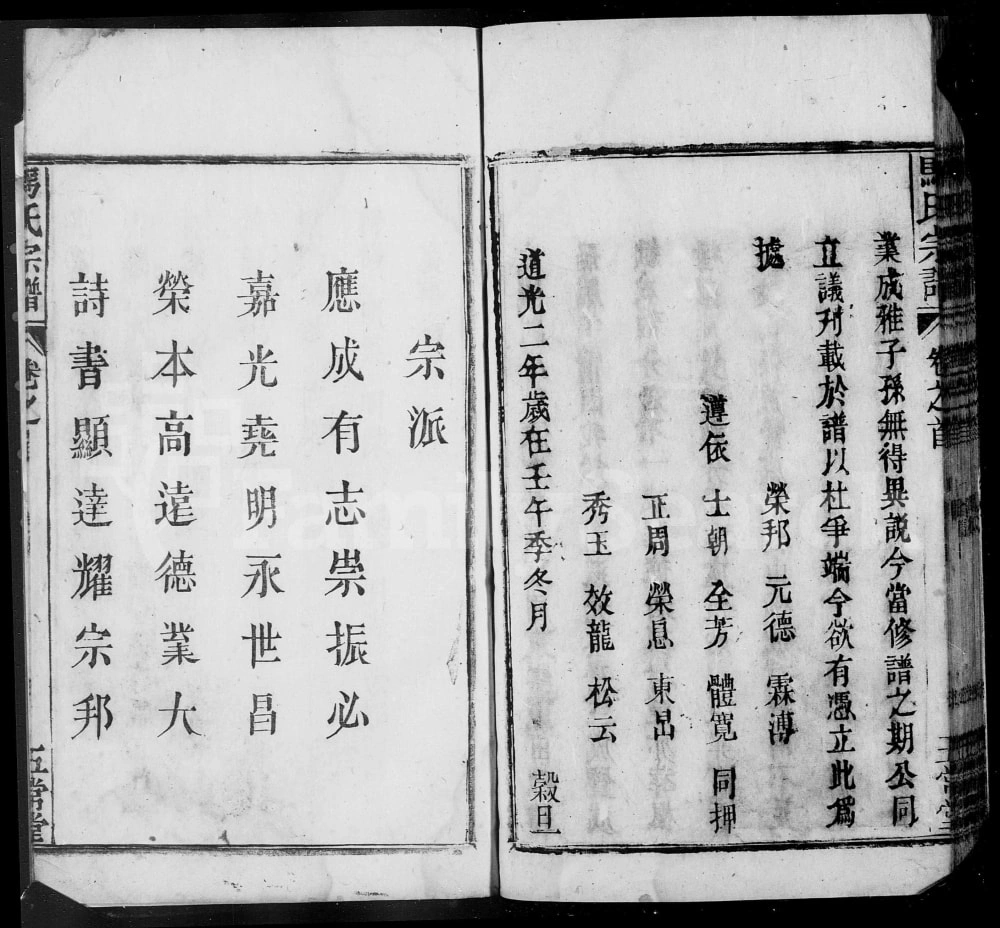 馬氏宗譜
卷之首
五常堂
業成雅子孫無得異説今當修譜之期公同
立議刋載於譜以杜爭端今欲有憑立此為
據
榮邦 元德 霖溥
遵依 士朝 全芳 體寬 同押
正周 榮息 東昂
秀玉 效龍 松云
道光二年歲在壬午季冬月 穀旦
宗派
應成有志崇振必
嘉光堯明永世昌
榮本高遠德業大
詩書顯達耀宗邦
馬氏宗譜
卷之首
五常堂